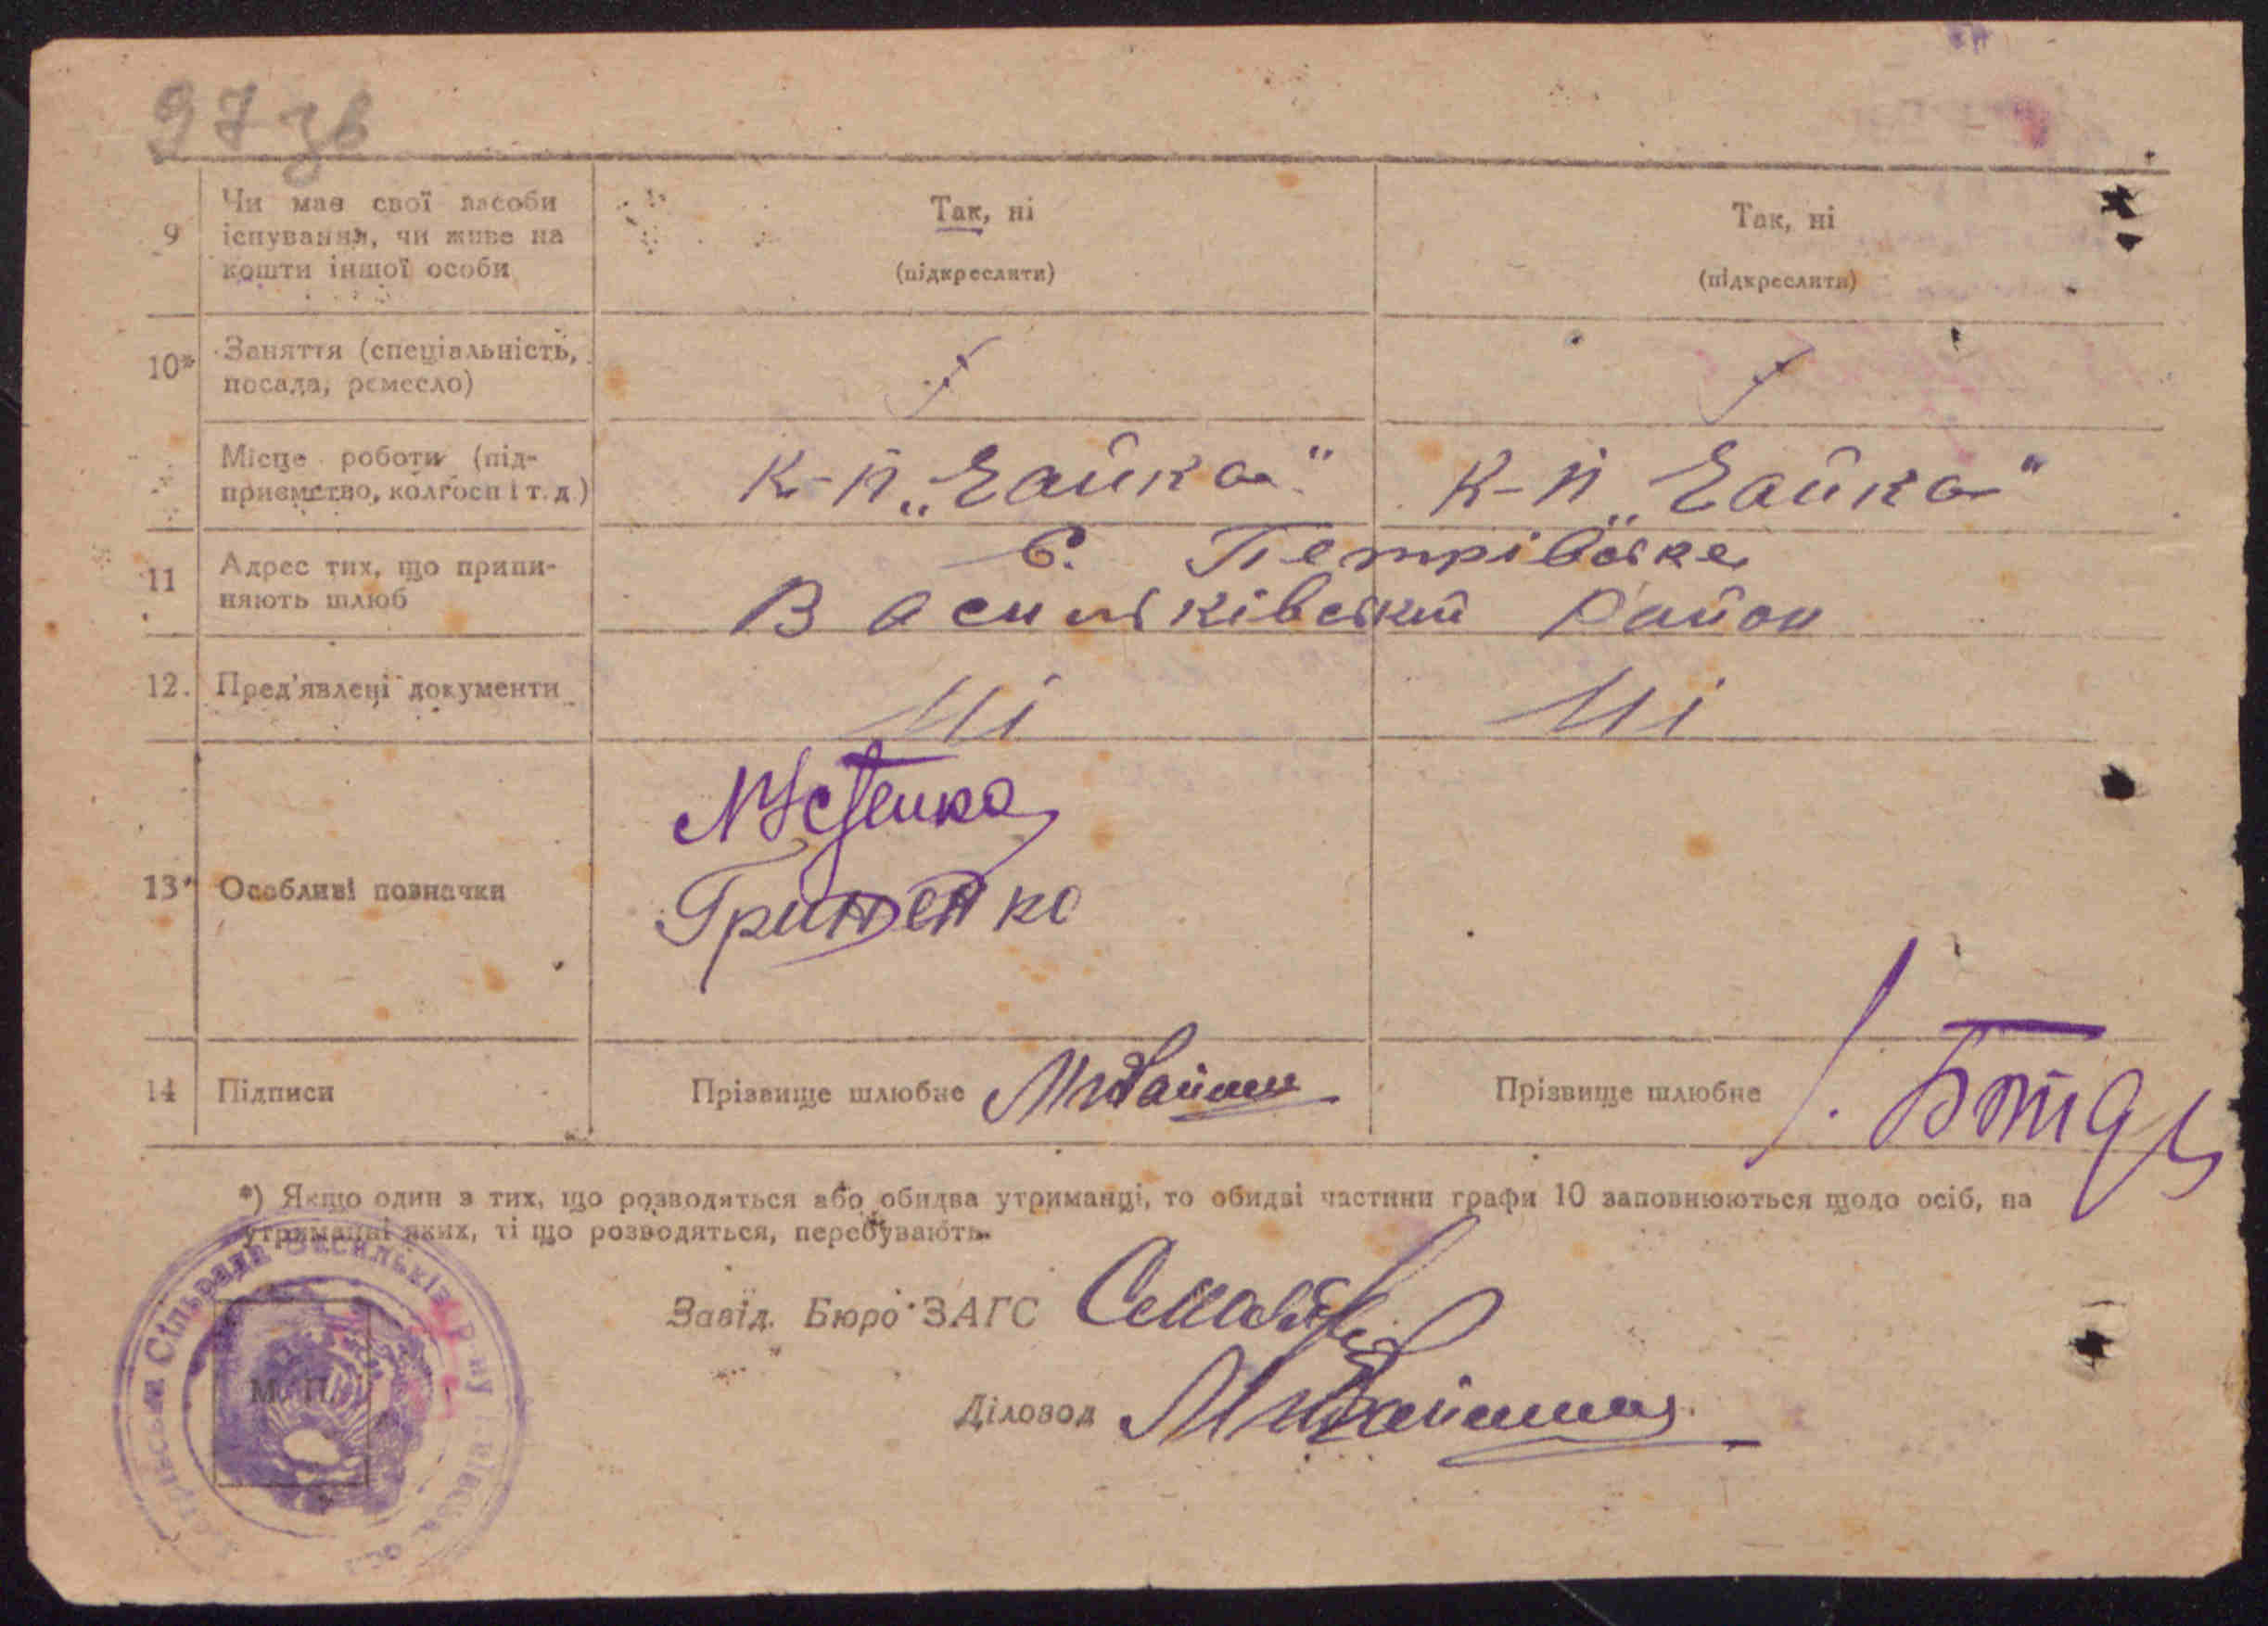 97 зв
9 Чи має свої засоби Так, ні Так, ні
існування, чи живе на
кошти іншої особи (підкреслити) (підкреслити)
10* Заняття (спеціальність,
посада, ремесло)
Місце роботи (під-
приємство, колгосп і т. д) к-п „Чайка" к-п „Чайка"
11 Адрес тих, що припи- с. Петрівське
няють шлюб Васильківський Район
12. Пред'явлені документи Ні Ні
13* Особливі позначки
Гриненко
14 Підписи Прізвище шлюбне Прізвище шлюбне
*) Якщо один з тих, що розводяться або обидва утриманці, то обидві частини графи 10 заповнюються щодо осіб, на
утриманні яких, ті що розводяться, перебувають.
Завід. Бюро ЗАГС
Діловод
М. П.
Сільради Васильків